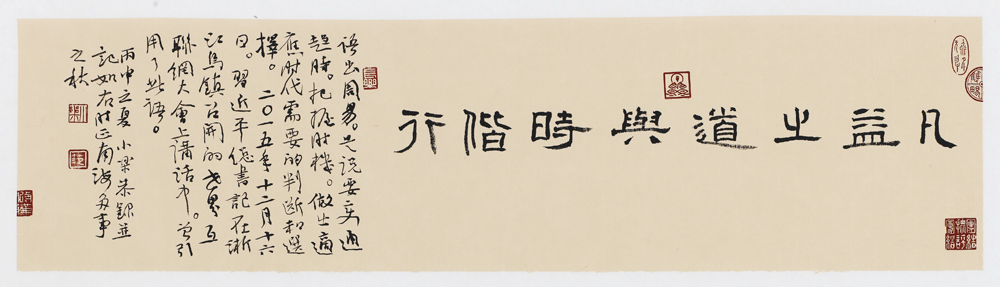 凡益之道與時偕行
语出周易。是说要变通
趋时。把握时機。做出適
應时代需要的判断和選
擇。二〇一五年十二月十六
日。習近平总書記在浙
江烏鎮召開的世界互
聯網大會上講话中。曾引
用了此语。
丙申之夏小梁恭録並
記如右时正南海多事
之秋